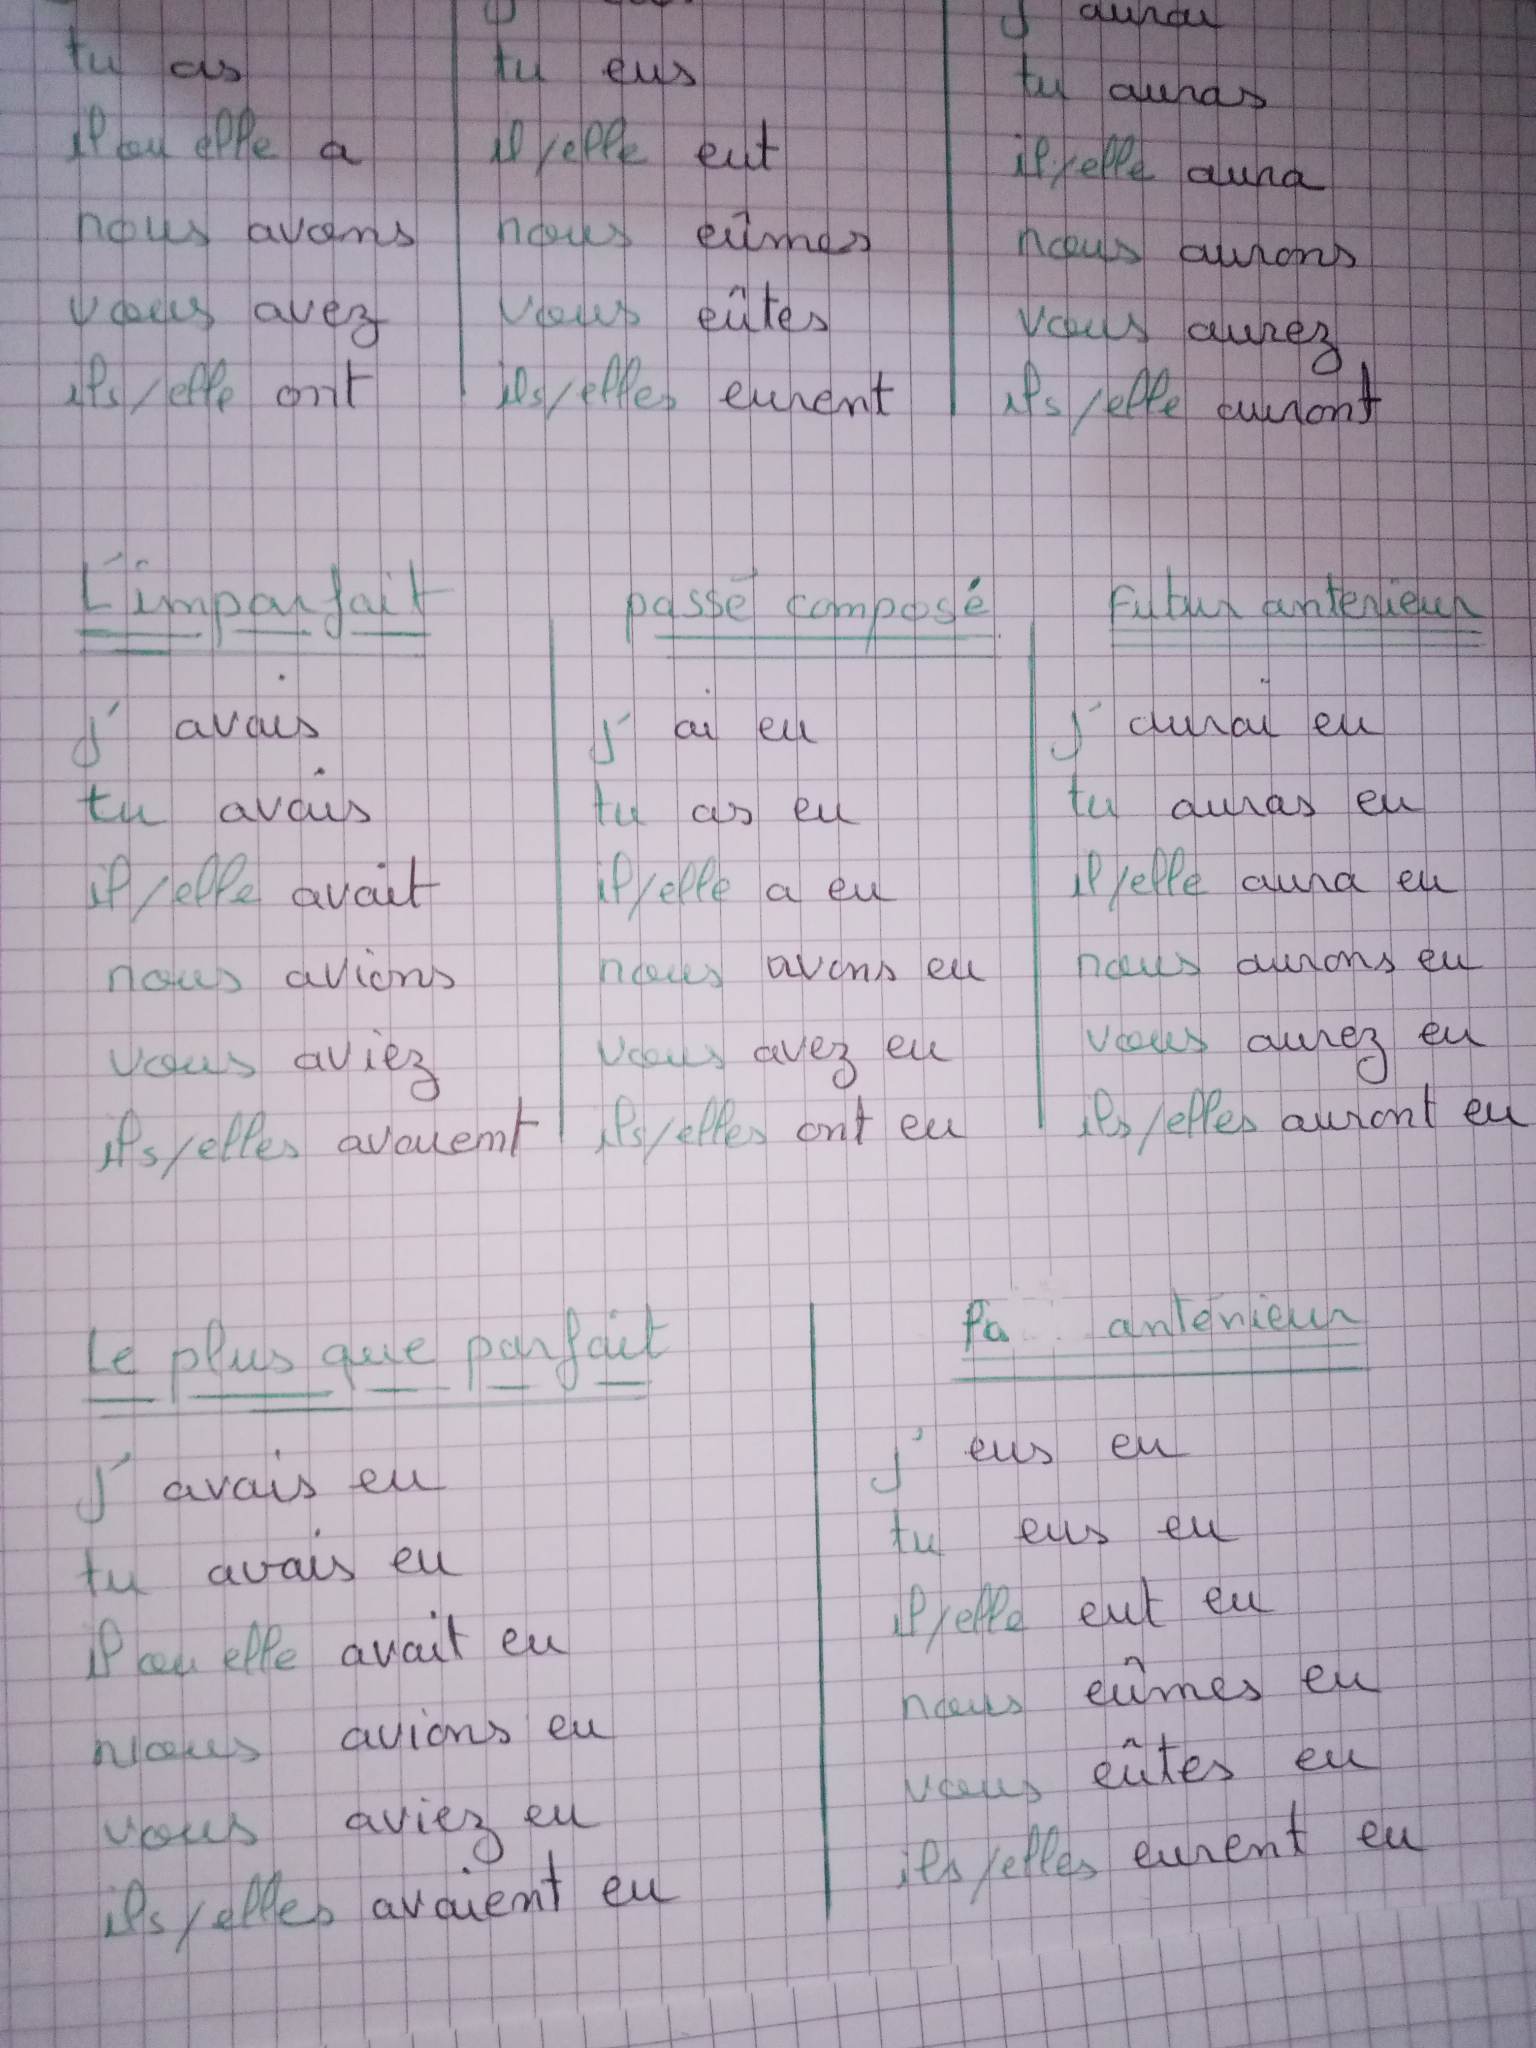 j' aurai
tu as
tu eus
tu auras
il ou elle a
il/elle eut
il/elle aura
nous avons
nous eûmes
nous aurons
vous avez
vous eûtes
vous aurez
ils/elle ont
ils/elles eurent
ils/elle auront
L'imparfait
passé composé
Futur anterieur
j' avais
j' ai eu
j' aurai eu
tu avais
tu as eu
tu auras eu
il/elle avait
il/elle a eu
il/elle aura eu
nous avions
nous avons eu
nous aurons eu
vous aviez
vous avez eu
vous aurez eu
ils/elles avaient
ils/elles ont eu
ils/elles auront eu
Le plus que parfait
j' avais eu
tu avais eu
il ou elle avait eu
nous avions eu
vous aviez eu
ils/elles avaient eu
Pa antérieur
j' eus eu
tu eus eu
il/elle eut eu
nous eûmes eu
vous eûtes eu
ils/elles eurent eu